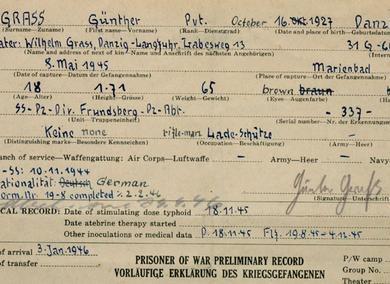 GRASS Günther Pvt. October 16.Okt.1927 Danz
(Surname—Zuname) (First name—Vorname) (Rank—Dienstgrad) (Date and place of birth—Geburtsdatum
ater: Wilhelm Grass, Danzig-Langfuhr, Labesweg 13 31 G-6
(Name and address of next of kin—Name und Anschrift des nächsten Angehörigen)
8. Mai 1945 Marienbad
(Date of capture—Datum der Gefangennahme) (Place of capture—Ort der Gefang
18 1.71 65 brown braun
(Age—Alter) (Height—Grösse) (Weight—Gewicht) (Eyes—Augenfarbe)
SS-Pz-Div. Frundsberg-Pz-Abt. - 337-
(Unit—Truppeneinheit) (Serial number—Nr. der Erkennung
Keine none rifle-man Lade-Schütze
(Distinguishing marks—Besondere Kennzeichen) (Occupation—Beschäftigung)
anch of service—Waffengattung: Air Corps—Luftwaffe — Army—Heer — Navy
-SS: 10.11.1944
ationalität: Deutsch German
orm Nr. 19-8 completed 2.2.46
Günter Graß
(Signature—Unterschrift
CAL RECORD: Date of stimulating dose typhoid 18.11.45
Date atebrine therapy started
Other inoculations or medical data D. 18.11.45 Flf. 19.8.45-4.12.45
of arrival 3.Jan.1946
of transfer
PRISONER OF WAR PRELIMINARY RECORD
VORLÄUFIGE ERKLÄRUNG DES KRIEGSGEFANGENEN
P/W camp
Group No.
Theater